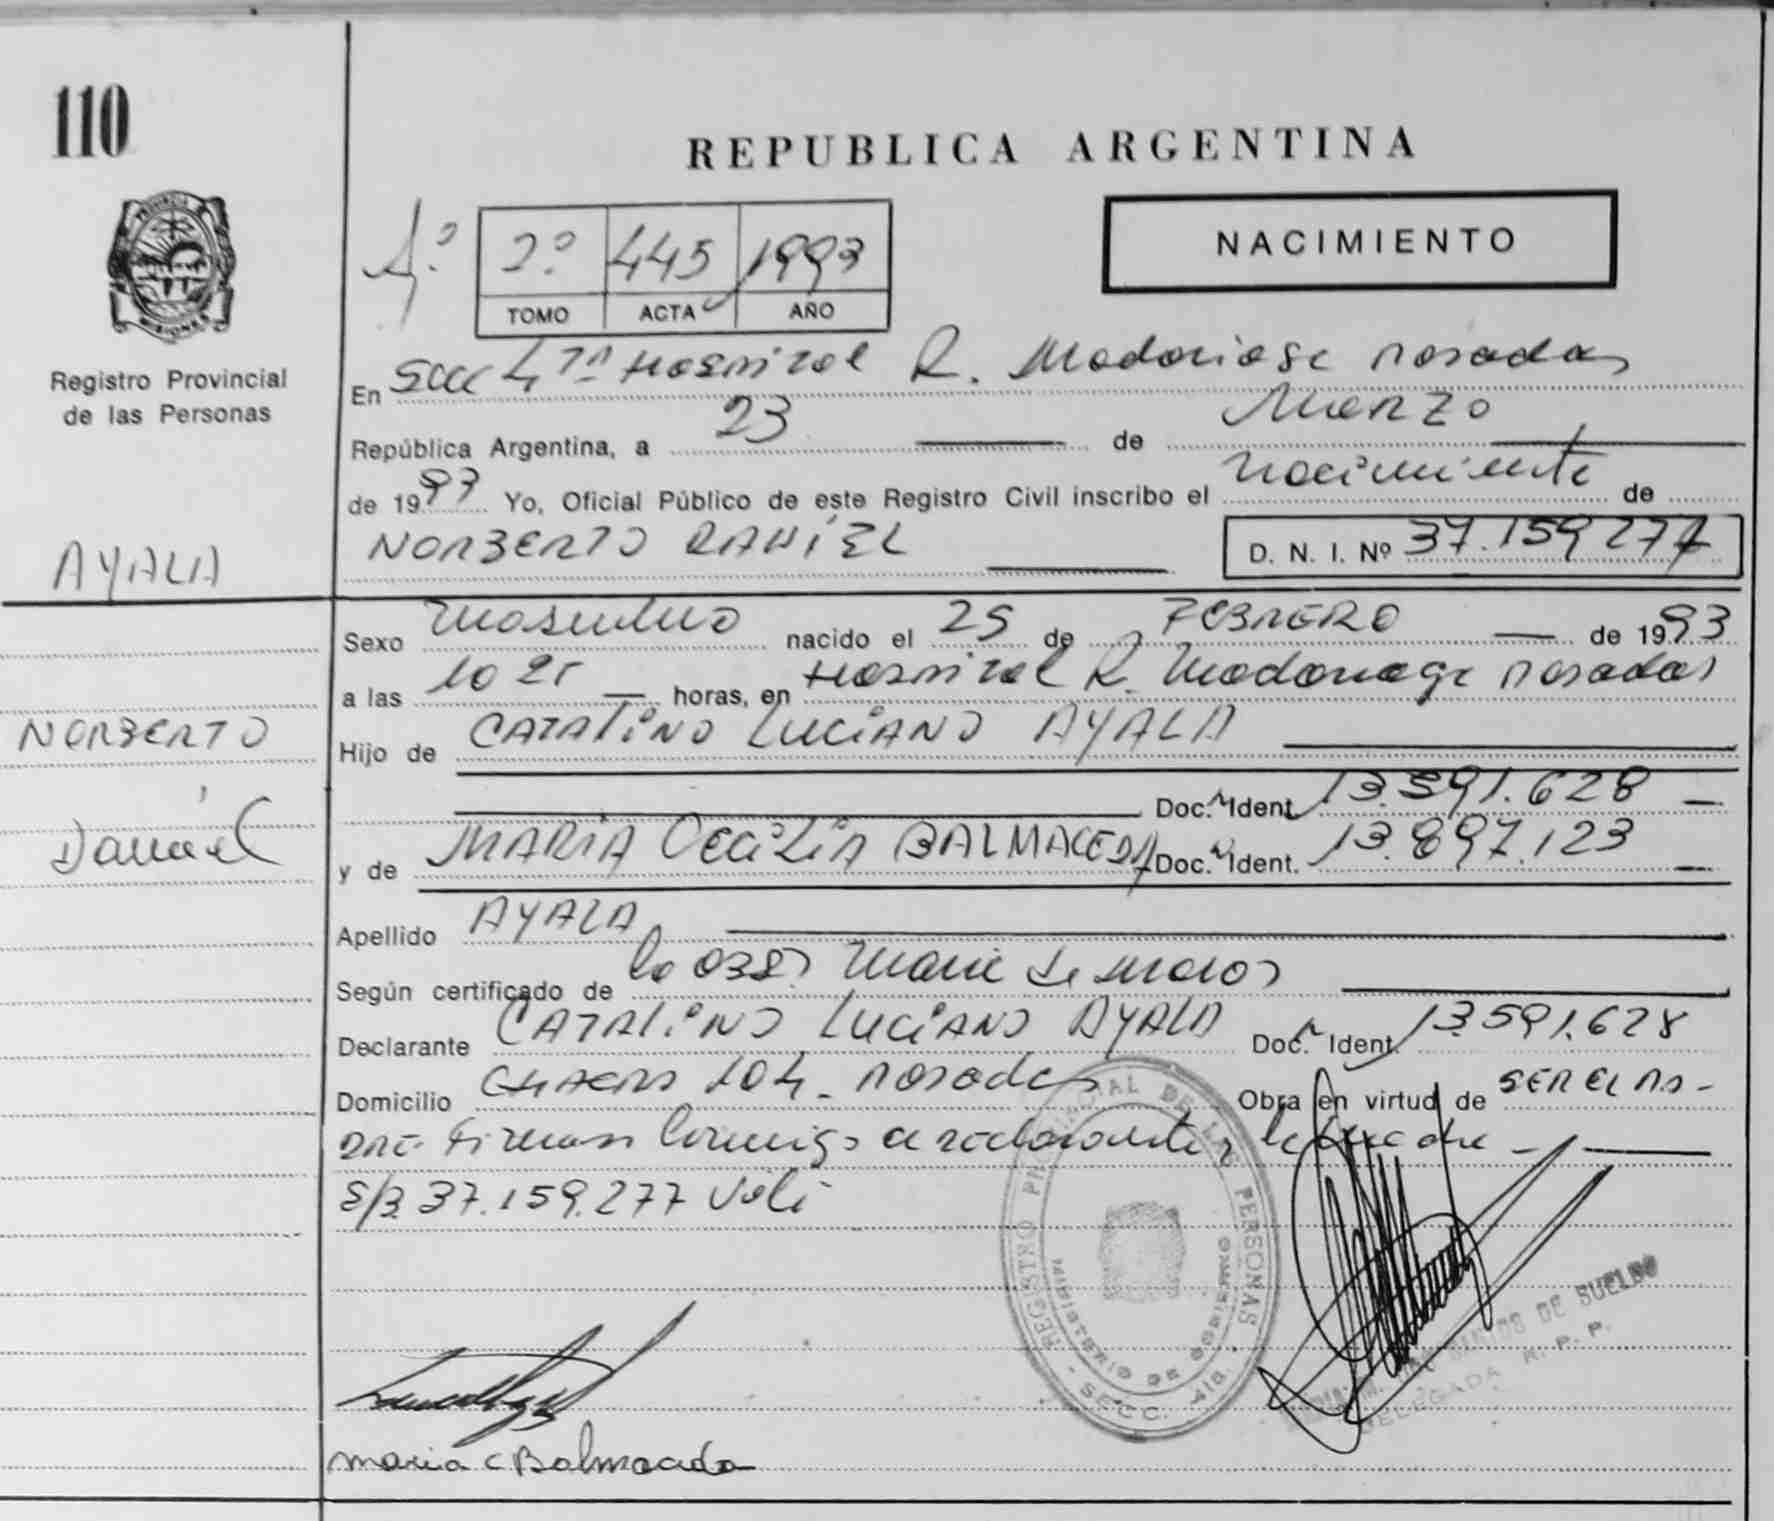 110
REPUBLICA ARGENTINA
4º 2º 445 1993
TOMO ACTA AÑO
NACIMIENTO
PROVINCIA
MISIONES
Registro Provincial
de las Personas
En Secc 4ta Hospital R. Madariaga Posadas
República Argentina, a 23 de Marzo
de 1993 Yo, Oficial Público de este Registro Civil inscribo el nacimiento de
AYALA
NORBERTO DANIEL D. N. I. Nº 37.159.277
Sexo Masculino nacido el 25 de FEBRERO de 1993
a las 10 25 horas, en Hospital R. Madariaga Posadas
NORBERTO
Hijo de CATALINO LUCIANO AYALA
Doc. Ident. 13.591.628
Daniel
y de MARIA CECILIA BALMACEDA Doc. Ident. 13.897.123
Apellido AYALA
Según certificado de la obst Maria de
Declarante CATALINO LUCIANO AYALA Doc. Ident. 13.591.628
Domicilio CHACRA 104 - Posadas Obra en virtud de SER EL PA-
DRE Firman conmigo el declarante y la madre
S/B 37.159.277 Vale
REGISTRO PROVINCIAL DE LAS PERSONAS
MINISTERIO DE GOBIERNO
- SECC. 4ta. -
DE SUELDO
DELEGADA R. P. P.
Maria C Balmaceda